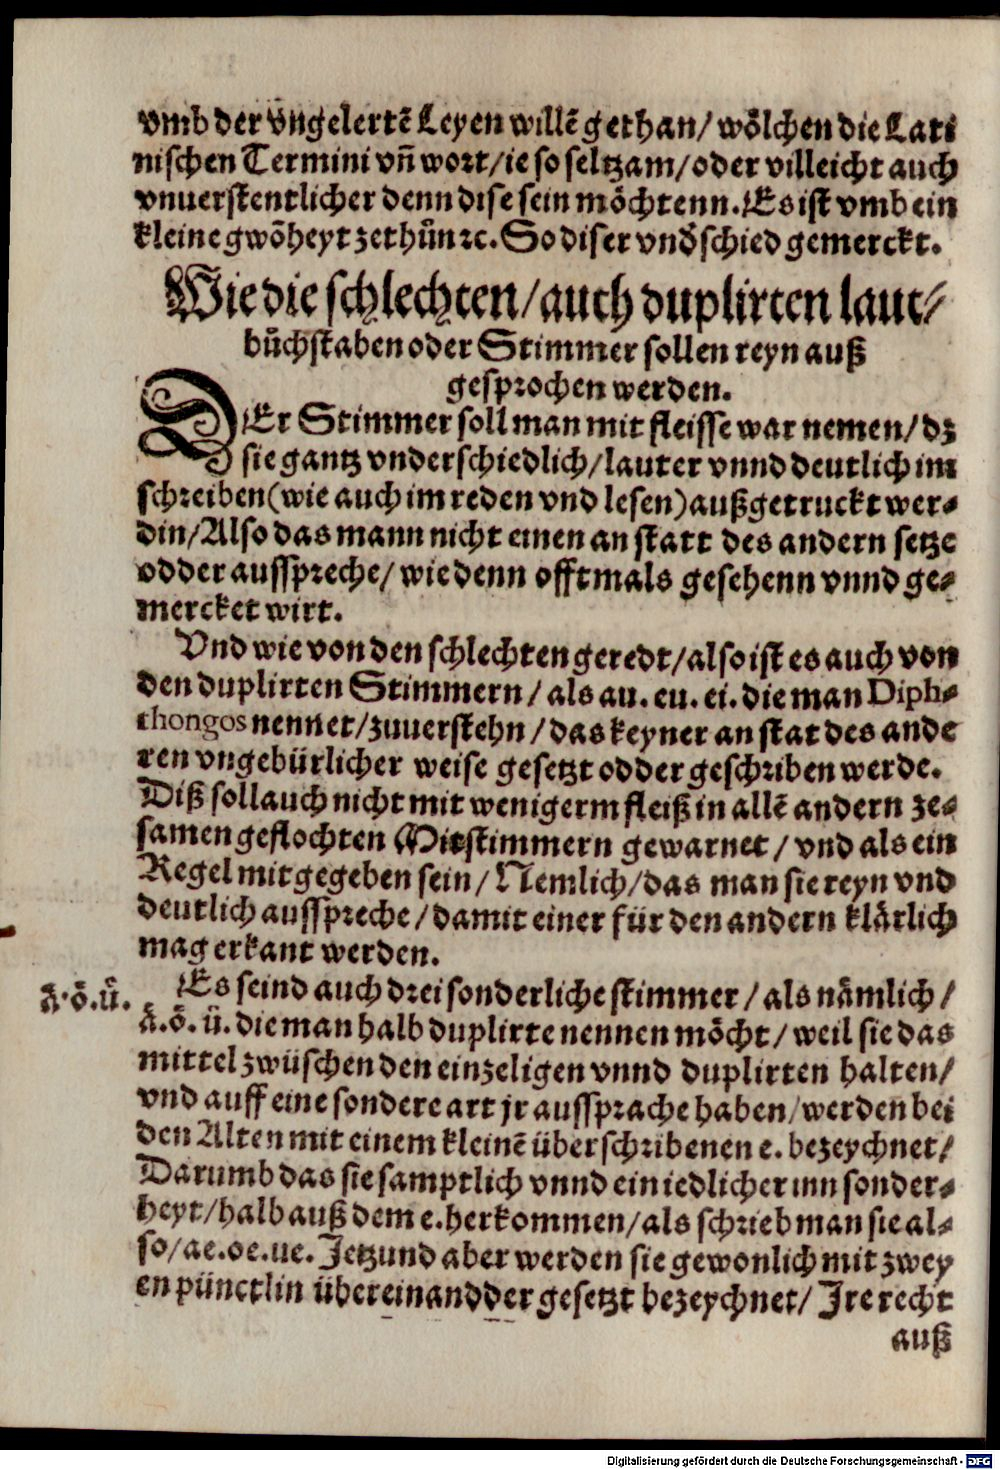 vmb der vngelertē Leyen willē gethan/ wölchen die Lati
nischen Termini vñ wort/ie so seltzam/oder villeicht auch
vnuerstentlicher denn dise sein möchtenn. Es ist vmb ein
kleine gwöheyt zethůn ꝛc. So diser vndschied gemerckt.
Wie die schlechten/auch duplirten laut⸗/
bůchstaben oder Stimmer sollen reyn auß
gesprochen werden.
DEr Stimmer soll man mit fleisse war nemen/dz
sie gantz vnderschiedlich/lauter vnnd deutlich im
schreiben(wie auch im reden vnd lesen)außgetruckt wer⸗
din/Also das mann nicht einen an statt des andern setze
odder aussspreche/ wie denn offtmals gesehenn vnnd ge⸗
mercket wirt.
Vnd wie von den schlechten geredt/also ist es auch von
den duplirten Stimmern/als au. eu. ei. die man Diph⸗
thongos nennet/zuuerstehn/das keyner an stat des ande
ren vngebürlicher weise gesetzt odder geschriben werde.
Diß soll auch nicht mit wenigerm fleiß in allē andern ze⸗
samen geflochten Mitstimmern gewarnet/ vnd als ein
Regel mit gegeben sein/ Nemlich/das man sie reyn vnd
deutlich aussspreche/damit einer für den andern klärlich
mag erkant werden.
aͤ. oͤ. uͤ.
Es seind auch drei sonderliche stimmer/als nämlich/
aͤ. oͤ. ü. die man halb duplirte nennen möcht/ weil sie das
mittel zwüschen den einzeligen vnnd duplirten halten/
vnd auff eine sondere art jr aussprache haben/werden bei
den Alten mit einem kleinē überschribenen e. bezeychnet/
Darumb das sie samptlich vnnd ein iedlicher inn sonder⸗
heyt/halb auß dem e. herkommen/als schrieb man sie al⸗
so/ae.oe.ue. Jetzund aber werden sie gewonlich mit zwey
en pünctlin übereinandder gesetzt bezeychnet/ Jre recht
auß
Digitalisierung gefördert durch die Deutsche Forschungsgemeinschaft - DFG